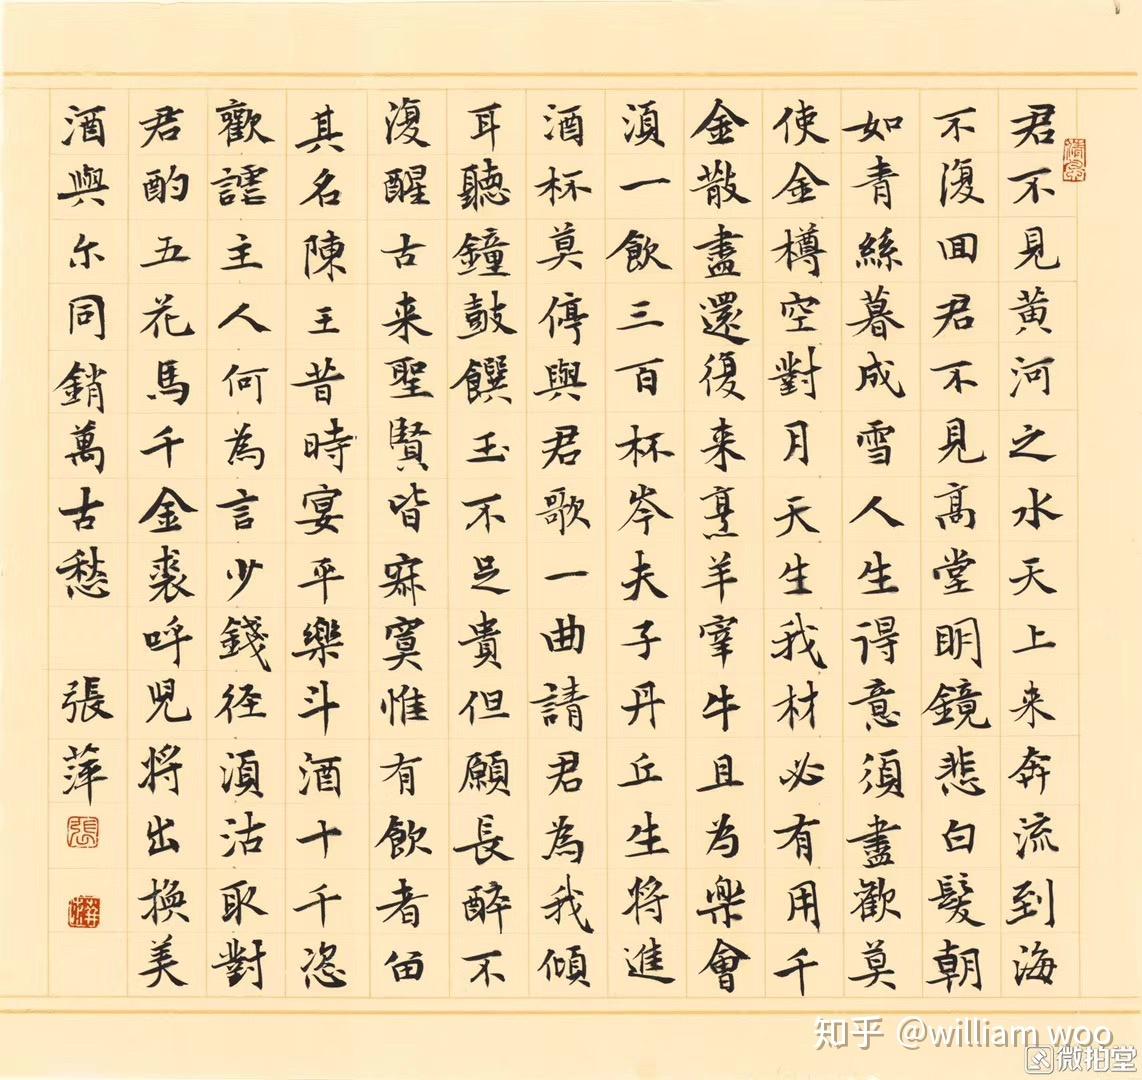 君不見黄河之水天上来奔流到海
不復回君不見高堂明鏡悲白髮朝
如青絲暮成雪人生得意須盡歡莫
使金樽空對月天生我材必有用千
金散盡還復来烹羊宰牛且為樂會
須一飲三百杯岑夫子丹丘生將進
酒杯莫停與君歌一曲請君為我傾
耳聽鐘鼓饌玉不足貴但願長醉不
復醒古来聖賢皆寂寞惟有飲者留
其名陳王昔時宴平樂斗酒十千恣
歡謔主人何為言少錢径須沽取對
君酌五花馬千金裘呼兒將出換美
酒與尔同銷萬古愁 張萍
張
萍
知乎 @william woo
微拍堂